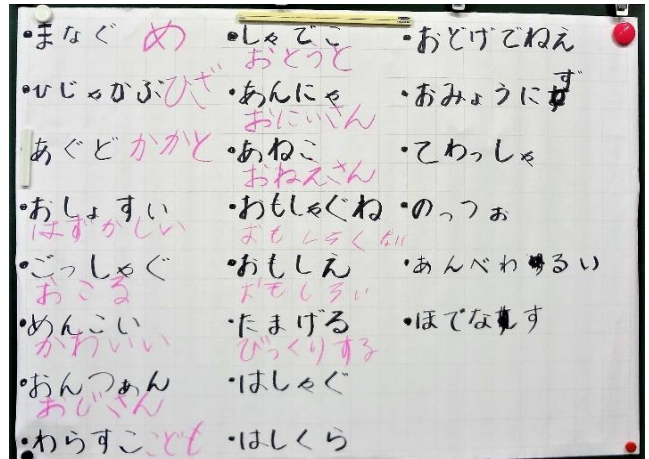 ・まなぐ め
・ひじゃかぶ ひざ
・あぐど かかと
・おしょすい
はずかしい
・ごっしゃぐ
おこる
・めんこい
かわいい
・おんつぁん
おじさん
・わらすこ こども
・しゃでこ
おとうと
・あんにゃ
おにいさん
・あねこ
おねえさん
・おもしゃぐね
おもしろくない
・おもしえ
おもしろい
・たまげる
びっくりする
・はしゃぐ
・はしくら
・おどげでねえ
・おみょうにず
・てわっしゃ
・のっつぉ
・あんべわるい
・ほでなす